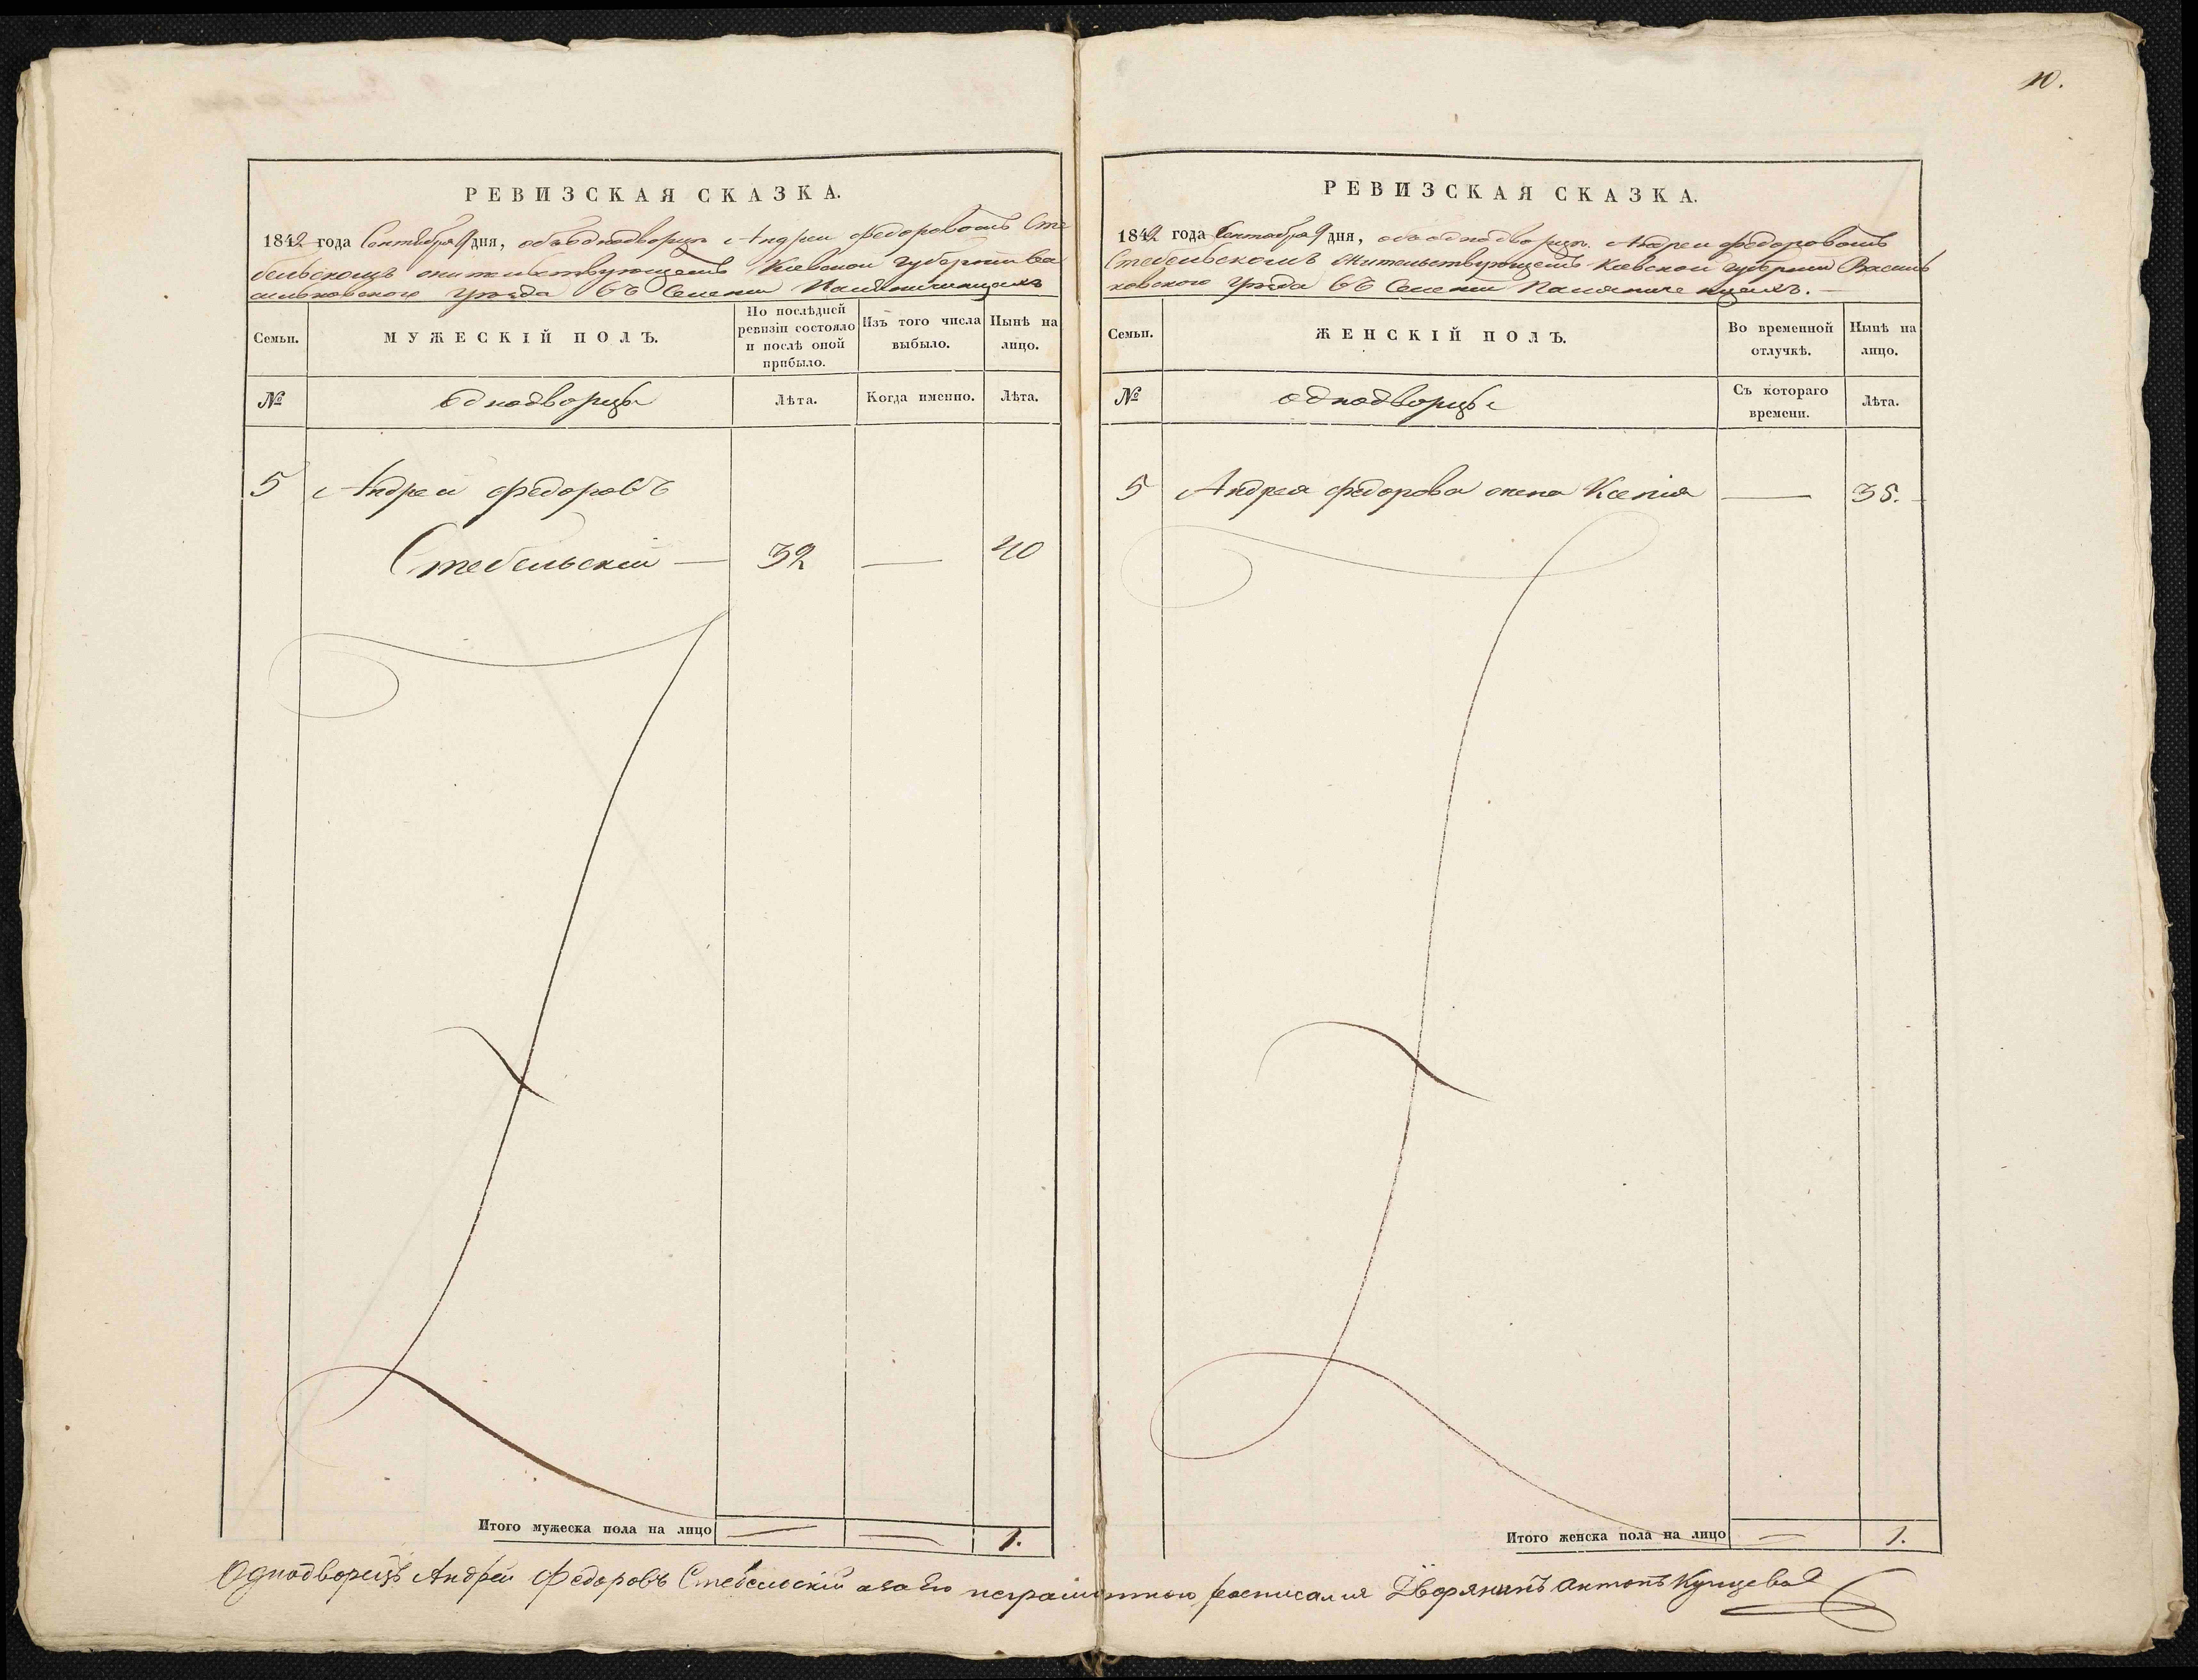 10.
РЕВИЗСКАЯ СКАЗКА.
1842 года Сентября 9 дня, объ однодворцѣ Андреи Федоровомъ Сте
бельскомъ жительствующемъ Киевской губернии Ва
сильковского уѣзда въ Селении
Семьи.
МУЖЕСКІЙ ПОЛЪ.
По послѣдней ревизіи состояло и послѣ оной прибыло.
Изъ того числа выбыло.
Нынѣ на лицо.
№
Однодворцы
Лѣта.
Когда именно.
Лѣта.
5 Андрей Федоровъ
Стебельскій — 32 — 40
Итого мужеска пола на лицо — — 1.
РЕВИЗСКАЯ СКАЗКА.
1842 года Сентября 9 дня, объ однодворцѣ Андреи Федоровомъ
Стебельскомъ жительствующемъ Киевской губернии Василь
ковского уѣзда въ Селении
Семьи.
ЖЕНСКІЙ ПОЛЪ.
Во временной отлучкѣ.
Нынѣ на лицо.
№
однодворцы
Съ котораго времени.
Лѣта.
5 Андрея Федорова жена Ксенія — 35.
Итого женска пола на лицо — 1.
Однодворецъ Андрей Федоровъ Стебельскій а за его неграмотною росписался Дворянинъ Антонъ